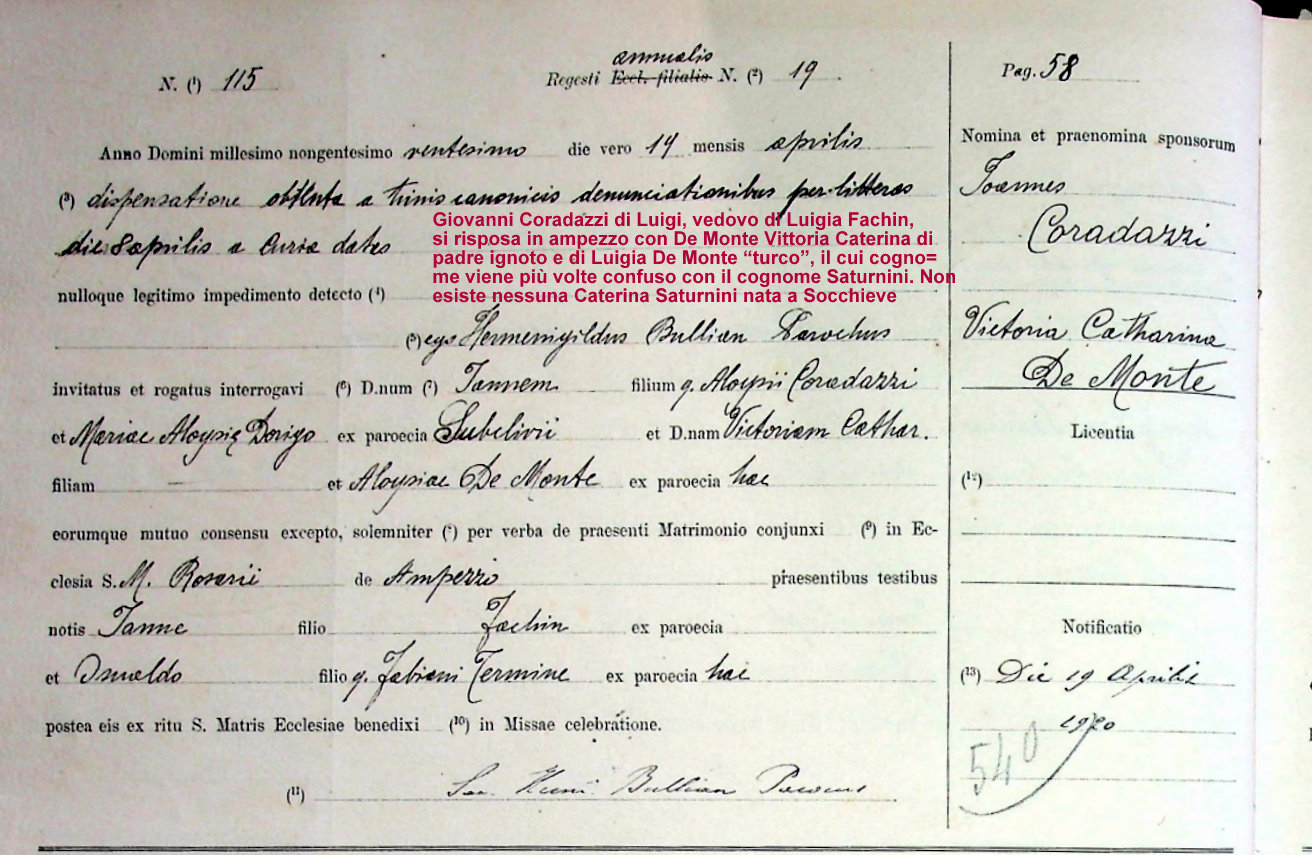 N. (¹) 115
annualis
Regesti Eccl. filialis N. (²) 19
Anno Domini millesimo nongentesimo ventesimo die vero 19 mensis aprilis
(³) dispensatione obtenta a trinis canonicis denunciationibus per litteras
die 8 aprilis a Curia datas
Giovanni Coradazzi di Luigi, vedovo di Luigia Fachin,
si risposa in ampezzo con De Monte Vittoria Caterina di
padre ignoto e di Luigia De Monte “turco”, il cui cogno=
me viene più volte confuso con il cognome Saturnini. Non
esiste nessuna Caterina Saturnini nata a Socchieve
nulloque legitimo impedimento detecto (⁴)
(⁵) ego Hermenigildus Bullian Parochus
invitatus et rogatus interrogavi (⁶) D.num (⁷) Joannem filium q. Aloysii Coradazzi
et Mariae Aloysię Dorigo ex paroecia et D.nam Victoriam Cathar.
filiam — et Aloysiae De Monte ex paroecia hac
eorumque mutuo consensu excepto, solemniter (⁸) per verba de praesenti Matrimonio conjunxi (⁹) in Ec-
clesia S. M. Rosarii de Ampezzo praesentibus testibus
notis Joanne filio Fachin ex paroecia
et Osualdo filio q. Fabiani Termine ex paroecia hac
postea eis ex ritu S. Matris Ecclesiae benedixi (¹⁰) in Missae celebratione.
(¹¹) Sac. Bullian Parocus
Pag. 58
Nomina et praenomina sponsorum
Joannes
Coradazzi
Victoria Catharina
De Monte
Licentia
(¹²)
Notificatio
(¹³) Die 19 Aprilis
1920
540